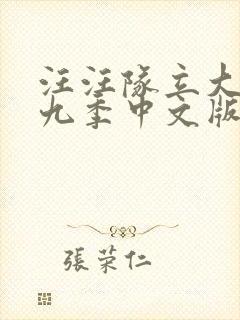 汪汪隊立大
九季中文版
張荣仁